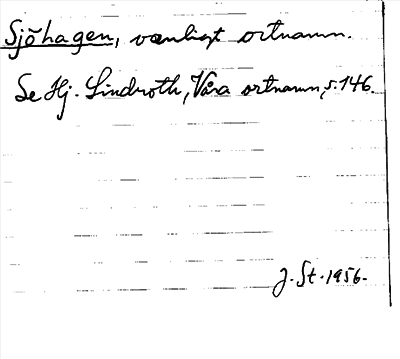 Sjöhagen, vanligt ortnamn.
Se Hj. Lindroth, Våra ortnamn, s. 146.
J. St. 1956.